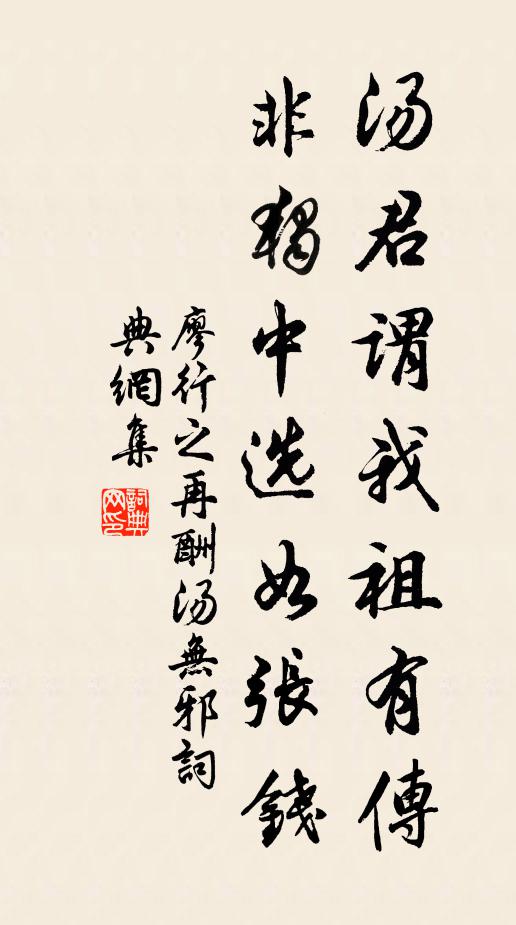 汤君谓我祖有傳
非獨中选如張錢
廖行之再酬汤無邪詞
典網集
詞典網印